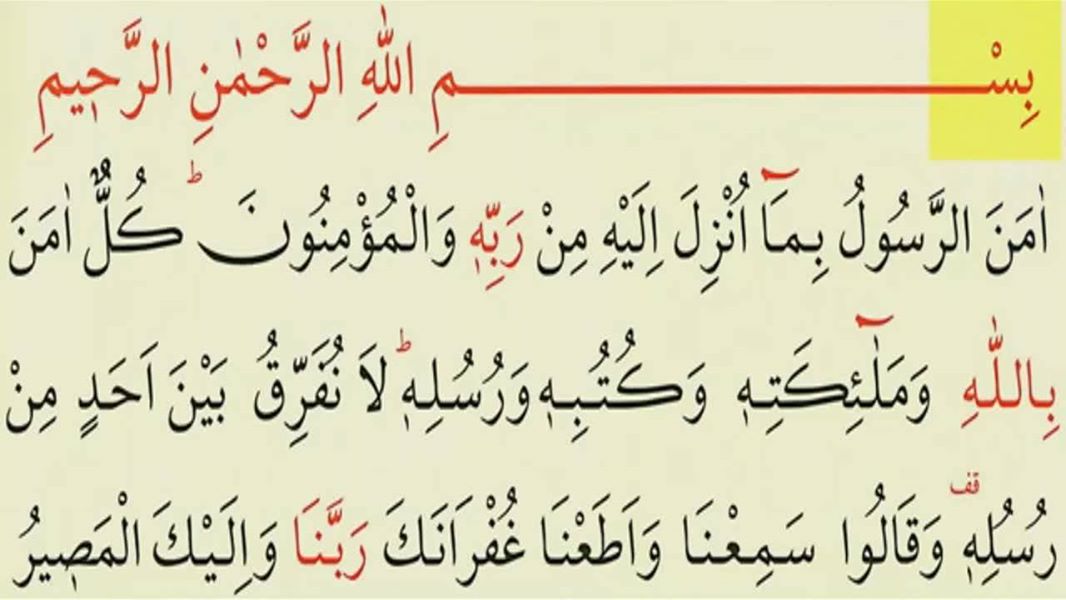 بِسْــــــــــــــــــــمِ اللهِ الرَّحْمٰنِ الرَّحٖيمِ
اٰمَنَ الرَّسُولُ بِمَٓا اُنْزِلَ اِلَيْهِ مِنْ رَبِّهٖ وَالْمُؤْمِنُونَ ؕ كُلٌّ اٰمَنَ
بِاللّٰهِ وَمَلٰٓئِكَتِهٖ وَكُتُبِهٖ وَرُسُلِهٖ ؕ لَا نُفَرِّقُ بَيْنَ اَحَدٍ مِنْ
رُسُلِهٖ قف وَقَالُوا سَمِعْنَا وَاَطَعْنَا غُفْرَانَكَ رَبَّنَا وَاِلَيْكَ الْمَصٖيرُ